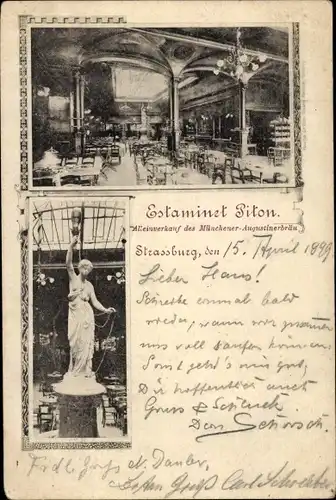 Estaminet Piton.
Alleinverkauf des Münchener-Augustinerbräu
Strassburg, den 15. April 1899
Lieber Hans!
Schreibe einmal bald
wieder, wann wir zusammen
uns voll saufen können.
Sonst geht's mir gut,
Dir hoffentlich auch
Gruss & Schluck
Dein
Frdl. Gruß A. Danler,
Besten Gruß Carl